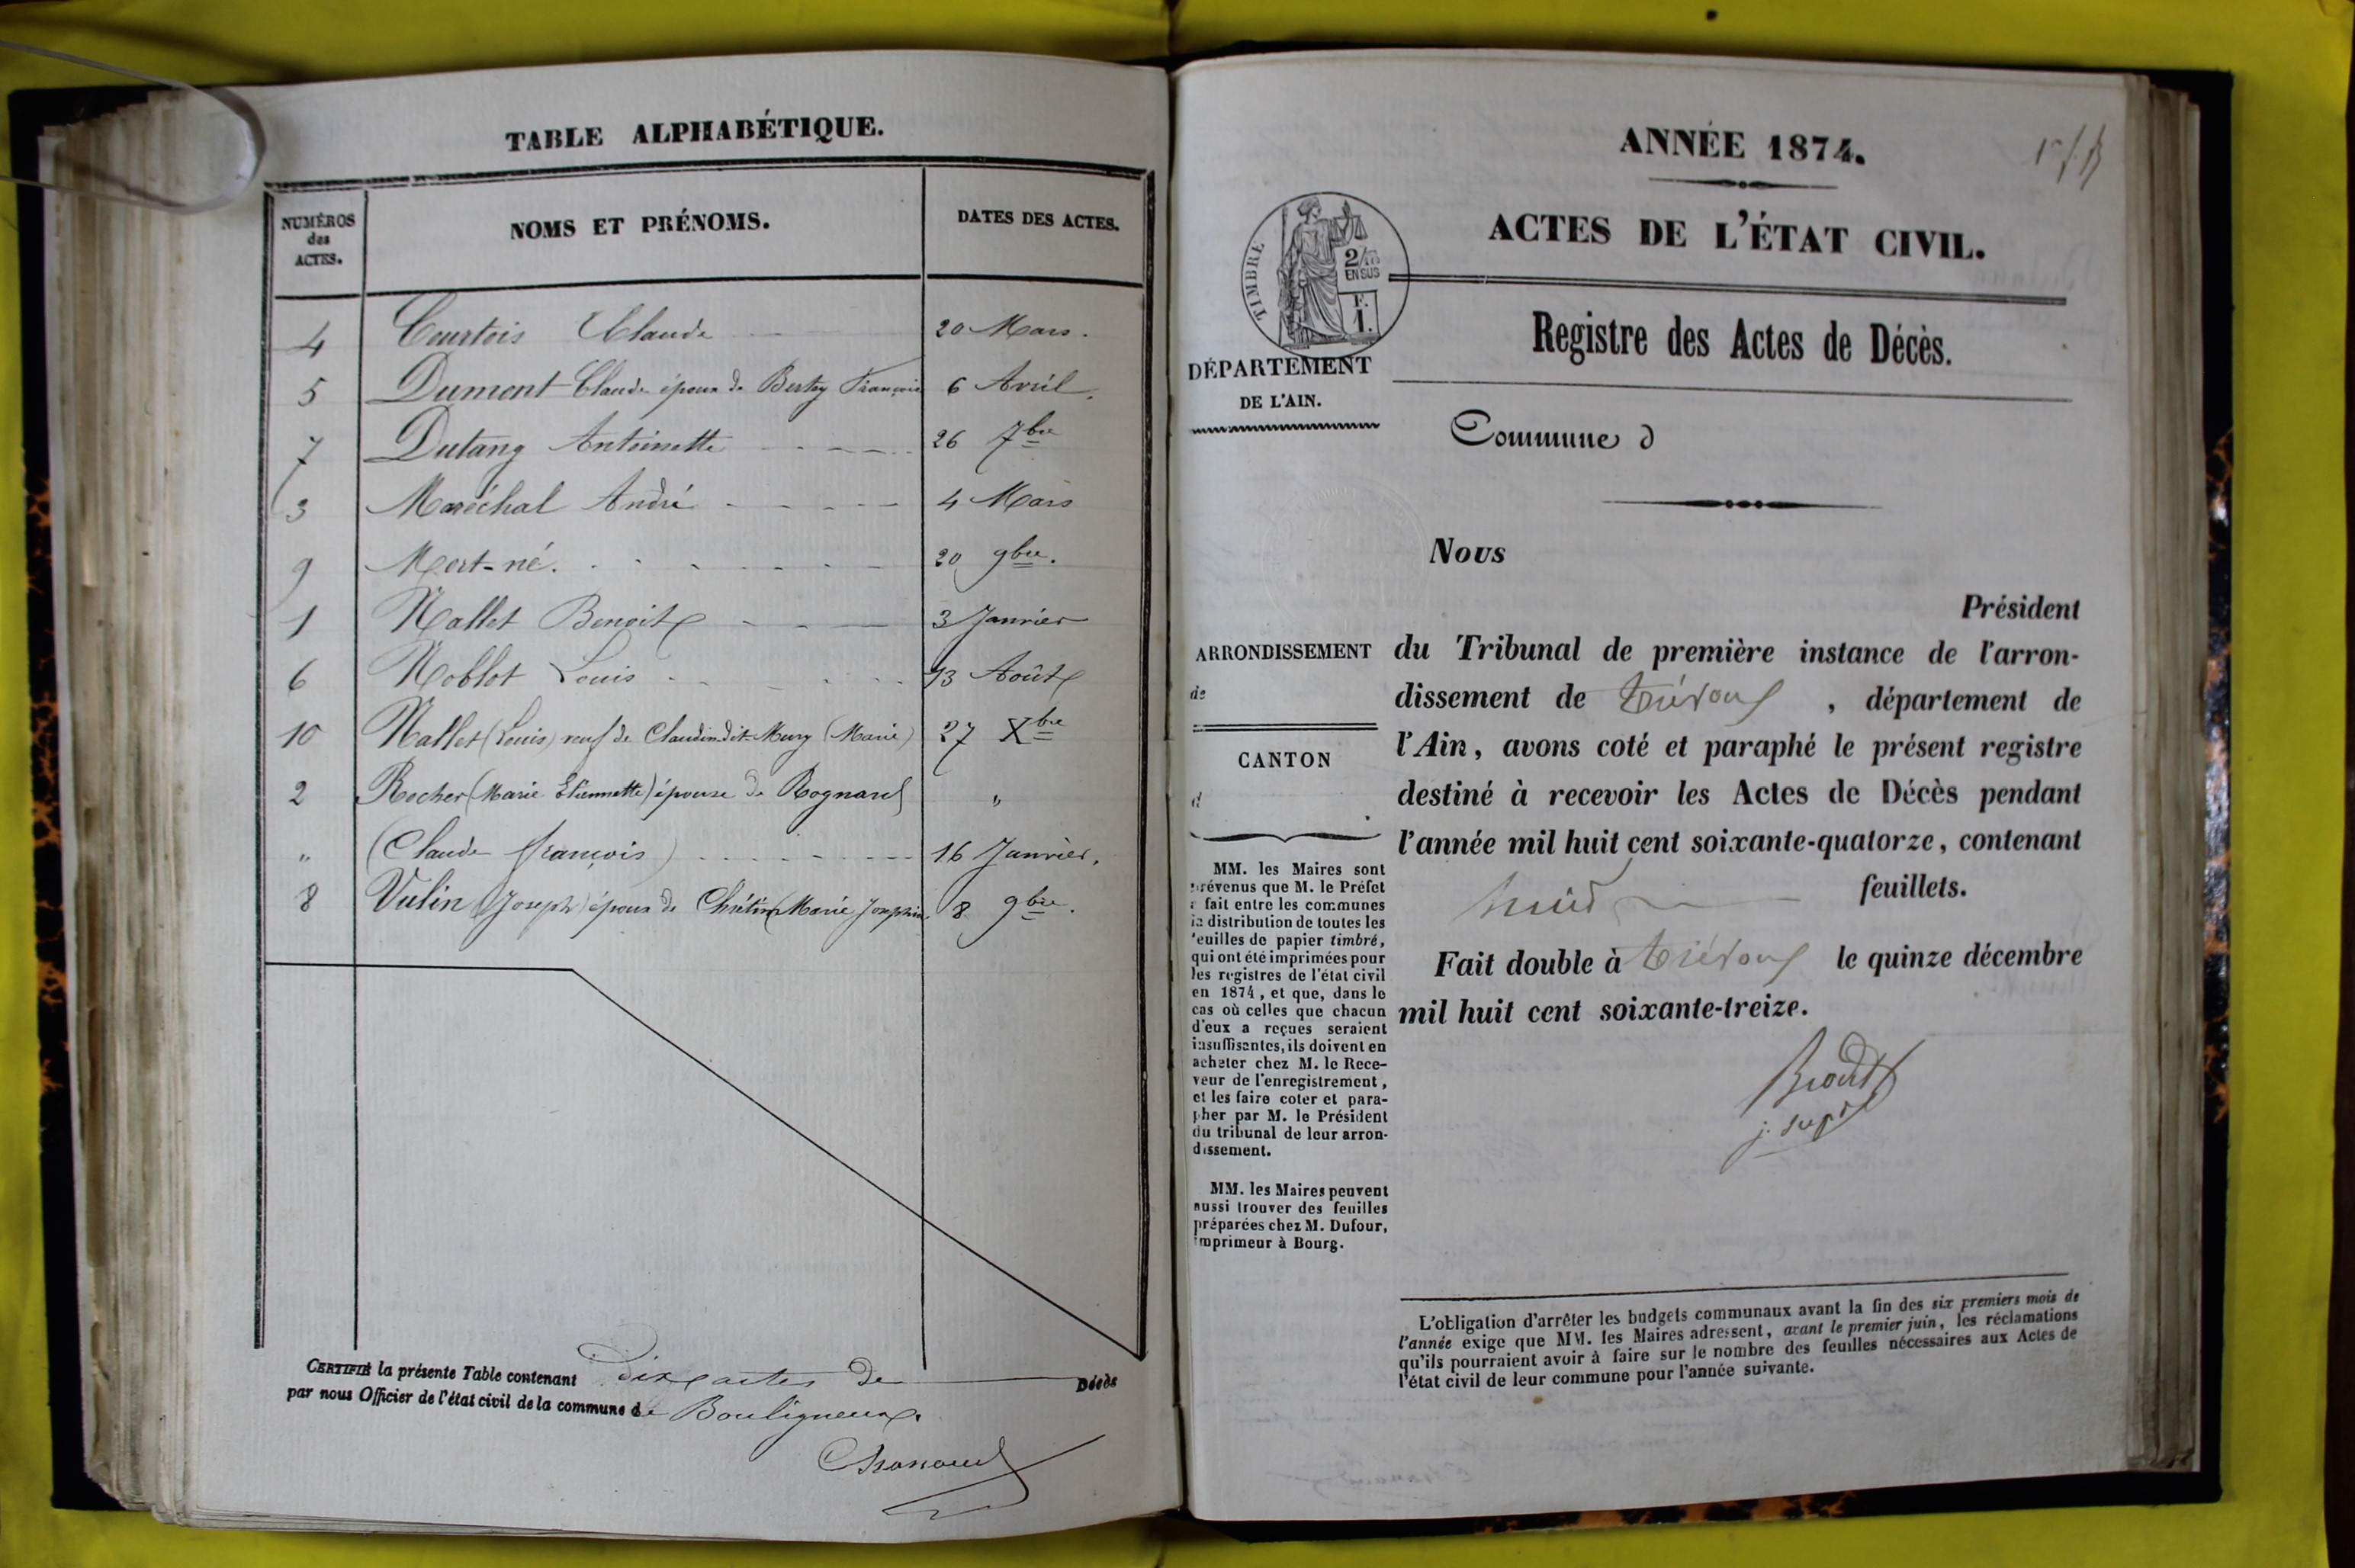 TABLE ALPHABÉTIQUE.
NUMÉROS des ACTES.
NOMS ET PRÉNOMS.
DATES DES ACTES.
4 Courtois Claude 20 Mars.
5 Dumont Claude époux de Bertry François 6 Avril.
7 Dutang Antoinette 26 7bre
3 Maréchal André 4 Mars
9 Mort-né. 20 9bre.
1 Nallet Benoit 3 Janvier
6 Noblot Louis 13 Août
10 Nallet (Louis) veuf de Claudin dit Mury (Marie) 27 Xbre
2 Rocher (Marie Etiennette) épouse de Rognard "
" (Claude françois) 16 Janvier.
8 Vulin (Joseph) époux de Chrétin (Marie Josephin. 8 9bre.
CERTIFIÉ la présente Table contenant Dix actes de Décès
par nous Officier de l'état civil de la commune de Bouligneux.
ANNÉE 1874.
ACTES DE L'ÉTAT CIVIL.
TIMBRE
2/10
EN SUS
F.
1.
Registre des Actes de Décès.
DÉPARTEMENT
DE L'AIN.
Commune d
Nous
Président
ARRONDISSEMENT
de
CANTON
d
du Tribunal de première instance de l'arron-
dissement de Trévoux , département de
l'Ain, avons coté et paraphé le présent registre
destiné à recevoir les Actes de Décès pendant
l'année mil huit cent soixante-quatorze, contenant
huit feuillets.
Fait double à Trévoux le quinze décembre
mil huit cent soixante-treize.
j. sup
MM. les Maires sont
prévenus que M. le Préfet
a fait entre les communes
la distribution de toutes les
feuilles de papier timbré,
qui ont été imprimées pour
les registres de l'état civil
en 1874, et que, dans le
cas où celles que chacun
d'eux a reçues seraient
insuffisantes, ils doivent en
acheter chez M. le Rece-
veur de l'enregistrement,
et les faire coter et para-
pher par M. le Président
du tribunal de leur arron-
dissement.
MM. les Maires peuvent
aussi trouver des feuilles
préparées chez M. Dufour,
imprimeur à Bourg.
L'obligation d'arrêter les budgets communaux avant la fin des six premiers mois de
l'année exige que MM. les Maires adressent, avant le premier juin, les réclamations
qu'ils pourraient avoir à faire sur le nombre des feuilles nécessaires aux Actes de
l'état civil de leur commune pour l'année suivante.